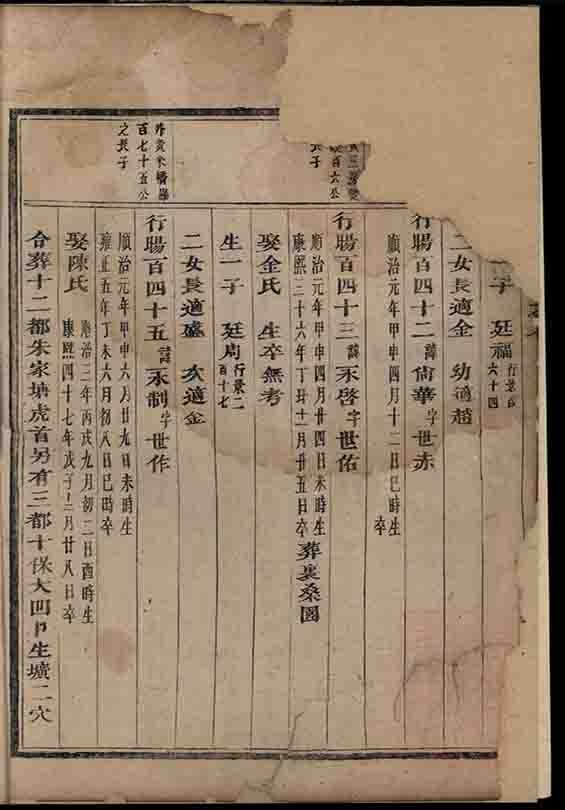 子 廷福 行景百六十四
二女長適金 幼適趙
行暘百四十二 諱尙華 字世赤
順治元年甲申四月十二日巳時生
卒
百六公
之長子
行暘百四十三 諱丕啓 字世佑
順治元年甲申四月廿四日未時生
康熙三十六年丁丑十一月廿五日卒 葬裏桑園
娶金氏 生卒無考
生一子 廷周 行景二百十七
二女長適盛 次適金
阼黃米橋
百七十五公
之長子
行暘百四十五 諱丕制 字世作
順治元年甲申六月廿九日未時生
雍正五年丁未六月初八日巳時卒
娶陳氏 順治三年丙戌九月初二日酉時生
康熙四十七年戊子二月廿八日卒
合葬十二都朱家塘虎首另有三都十保大凹 生壙二穴